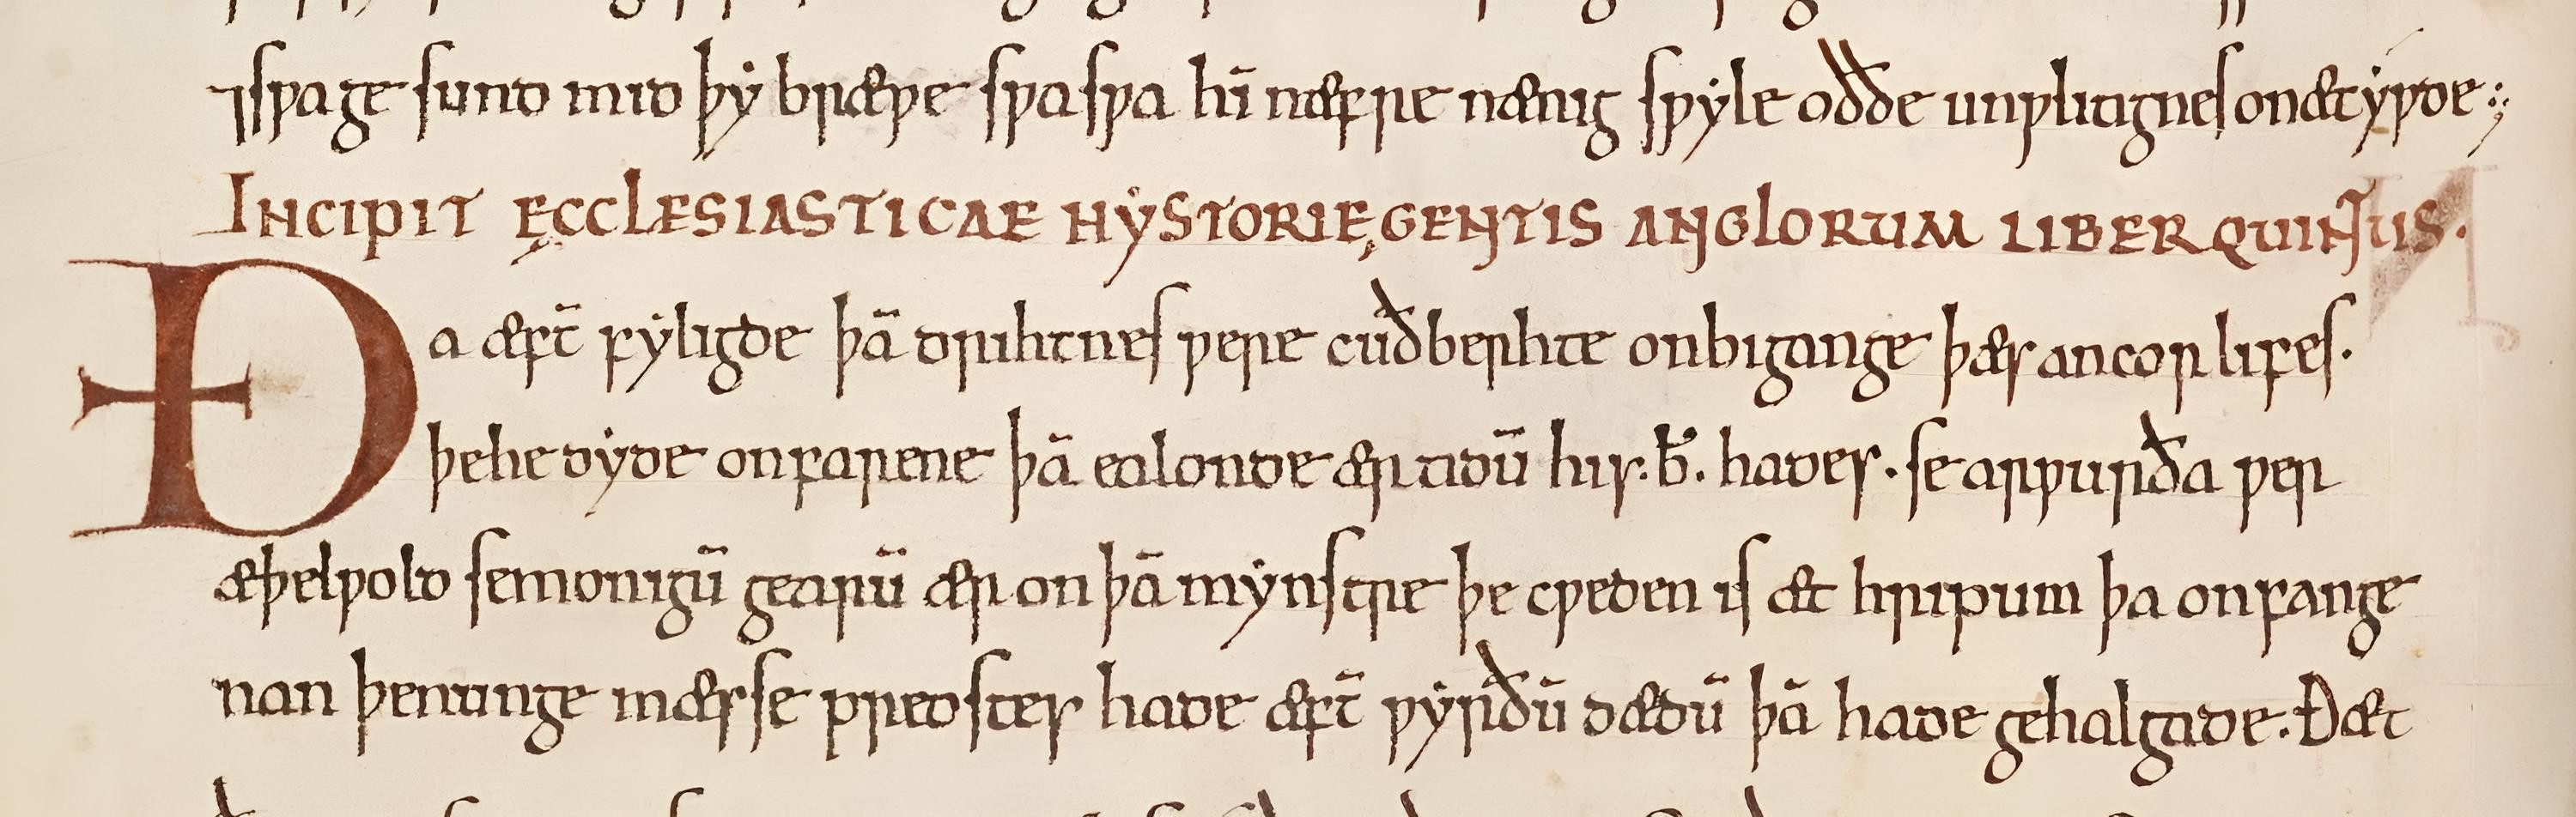 ⁊ swa gesund mid þẏ bræwe swa swa hī næfre nænig swẏle oððe unwlitignes on ætẏwde:;
INCIPIT ĘCCLESIASTICAE HẎSTORIĘ GENTIS ANGLORUM LIBER QUINTUS.
Ða æft̄ fẏligde þā drihtnes were cuðberhte on bigange þæs ancor lifes.
þe he dẏde on farene þā ealonde ær tidū his .b̄. hades. se arwurða wer
æþelwold se monigū gearū ær on þā mẏnstre þe cweden is æt hripum þa onfange
nan þenunge mæsse preostes hade æft̄ wẏrðū dædū þā hade gehalgade. Ðæt